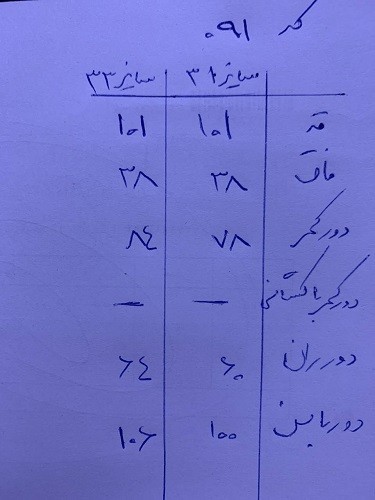 کد ۰۹۱
سایز ۳۱ سایز ۳۳
قد ۱۰۱ ۱۰۱
فاق ۳۸ ۳۸
دور کمر ۷۸ ۸۴
دور کمر با کشسانی — —
دور ران ۶۰ ۶۴
دور باسن ۱۰۰ ۱۰۶